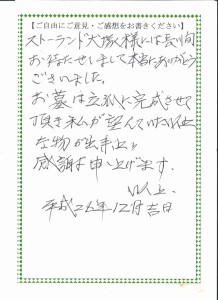 【ご自由にご意見・ご感想をお書きください】
ストーランド大塚様には長い間
お待たせしまして本当にありがとう
ございました。
お墓は立派に完成させて
頂き私が望んでいた以上
な物が出来上り
感謝申し上げます。
以上
平成26年12月吉日